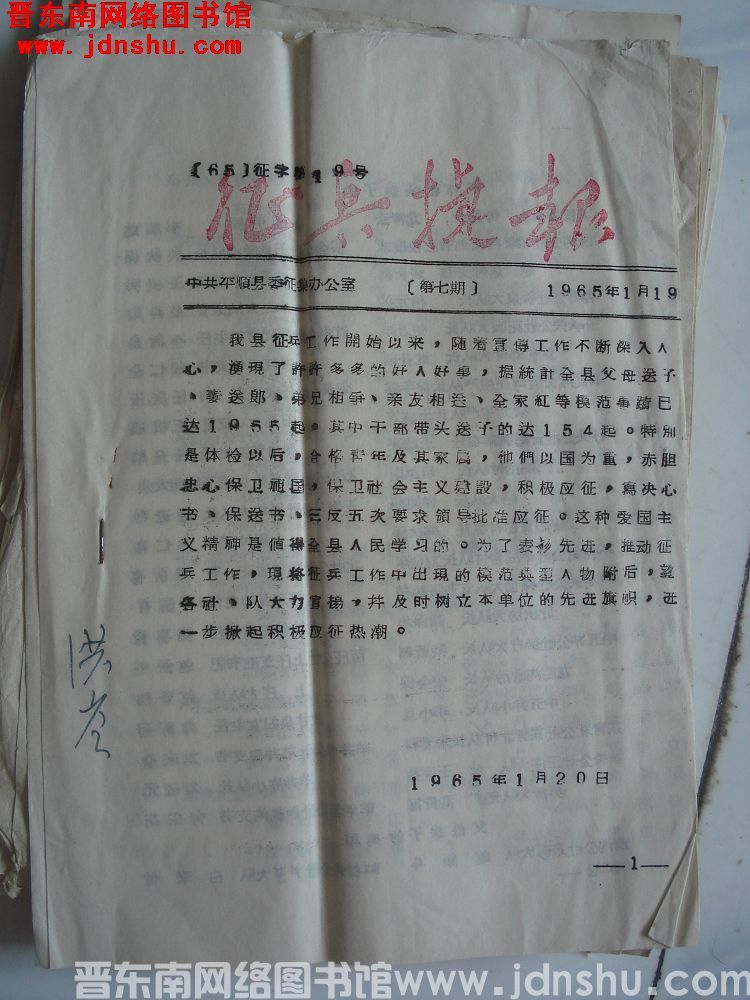 晋东南网络图书馆
www.jdnshu.com
〔65〕征字第19号
征兵捷报
中共平順县委征集办公室 〔第七期〕 1965年1月19
我县征兵工作開始以来，随着宣傳工作不断深入人
心，湧現了許許多多的好人好事，据統計全县父母送子
、妻送郎、弟兄相爭、亲友相送、全家紅等模范事蹟已
达1955起。其中干部带头送子的达154起。特別
是体检以后，合格青年及其家属，他們以国为重，赤胆
忠心保卫祖国，保卫社会主义建設，积极应征，寫决心
书、保送书、三反五次要求領导批准应征。这种爱国主
义精神是值得全县人民学习的。为了表彰先进，推动征
兵工作，現将征兵工作中出現的模范典型人物附后，望
各社、队大力宣揚，并及时树立本单位的先进旗帜，进
一步掀起积极应征热潮。
1965年1月20日
—1—
晋东南网络图书馆www.jdnshu.com